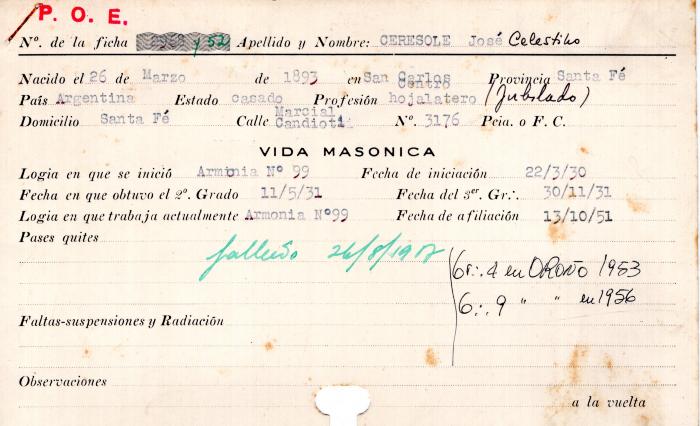 P. O. E.
Nº. de la ficha y 52 Apellido y Nombre: CERESOLE José Celestino
Nacido el 26 de Marzo de 1893 en San Carlos Centro Provincia Santa Fé
País Argentina Estado casado Profesión hojalatero (Jubilado)
Domicilio Santa Fé Calle Marcial Candioti Nº. 3176 Pcia. o F. C.
VIDA MASONICA
Logia en que se inició Arminia Nº 99 Fecha de iniciación 22/3/30
Fecha en que obtuvo el 2º. Grado 11/5/31 Fecha del 3er. Gr∴. 30/11/31
Logia en que trabaja actualmente Armonia Nº99 Fecha de afiliación 13/10/51
Pases quites
falleció 26/8/19
Gr∴ 4 en OROÑO 1953
G∴ 9 " " en 1956
Faltas-suspensiones y Radiación
Observaciones
a la vuelta